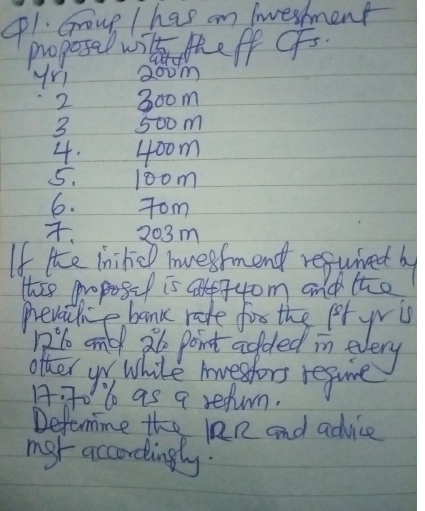 Q1. Group 1 has an Investment
proposal with the ff CFs.
Yr 1 200m
2 300m
3 500m
4. 400m
5. 100m
6. 70m
7. 203m
If the initial Investment required by
this proposal is 740m and the
prevailing bank rate for the 1st yr is
12% and 2% point added in every
other yr while investors require
17.70% as a return.
Determine the IRR and advice
mgt accordingly.